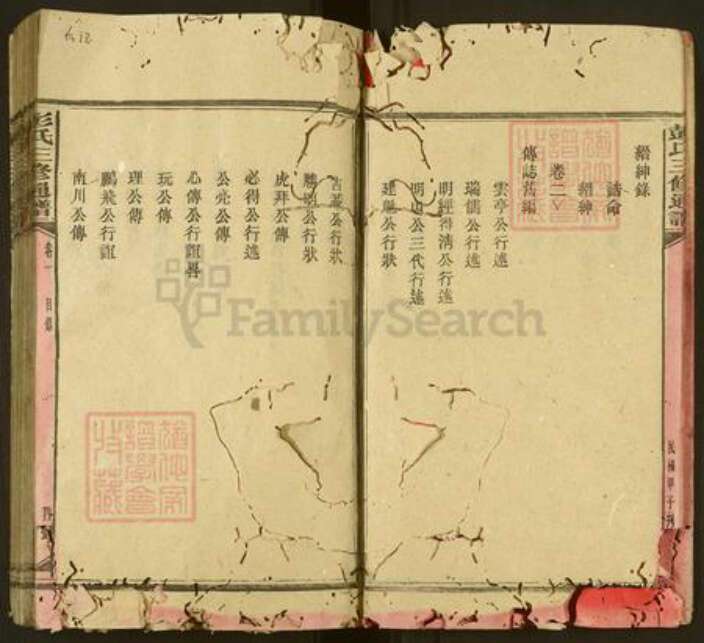 彭氏三修通譜
民國甲子刊
縉紳錄
誥命
縉紳
卷二
傳誌舊編
雲亭公行述
瑞儒公行述
明經得清公行述
明山公三代行述
建興公行狀
公行狀
公行狀
虎拜公傳
必得公行述
公亮公傳
心傳公行誼畧
玩公傳
理公傳
鵬飛公行誼
南川公傳
彭氏三修通譜
卷一
目錄
FamilySearch